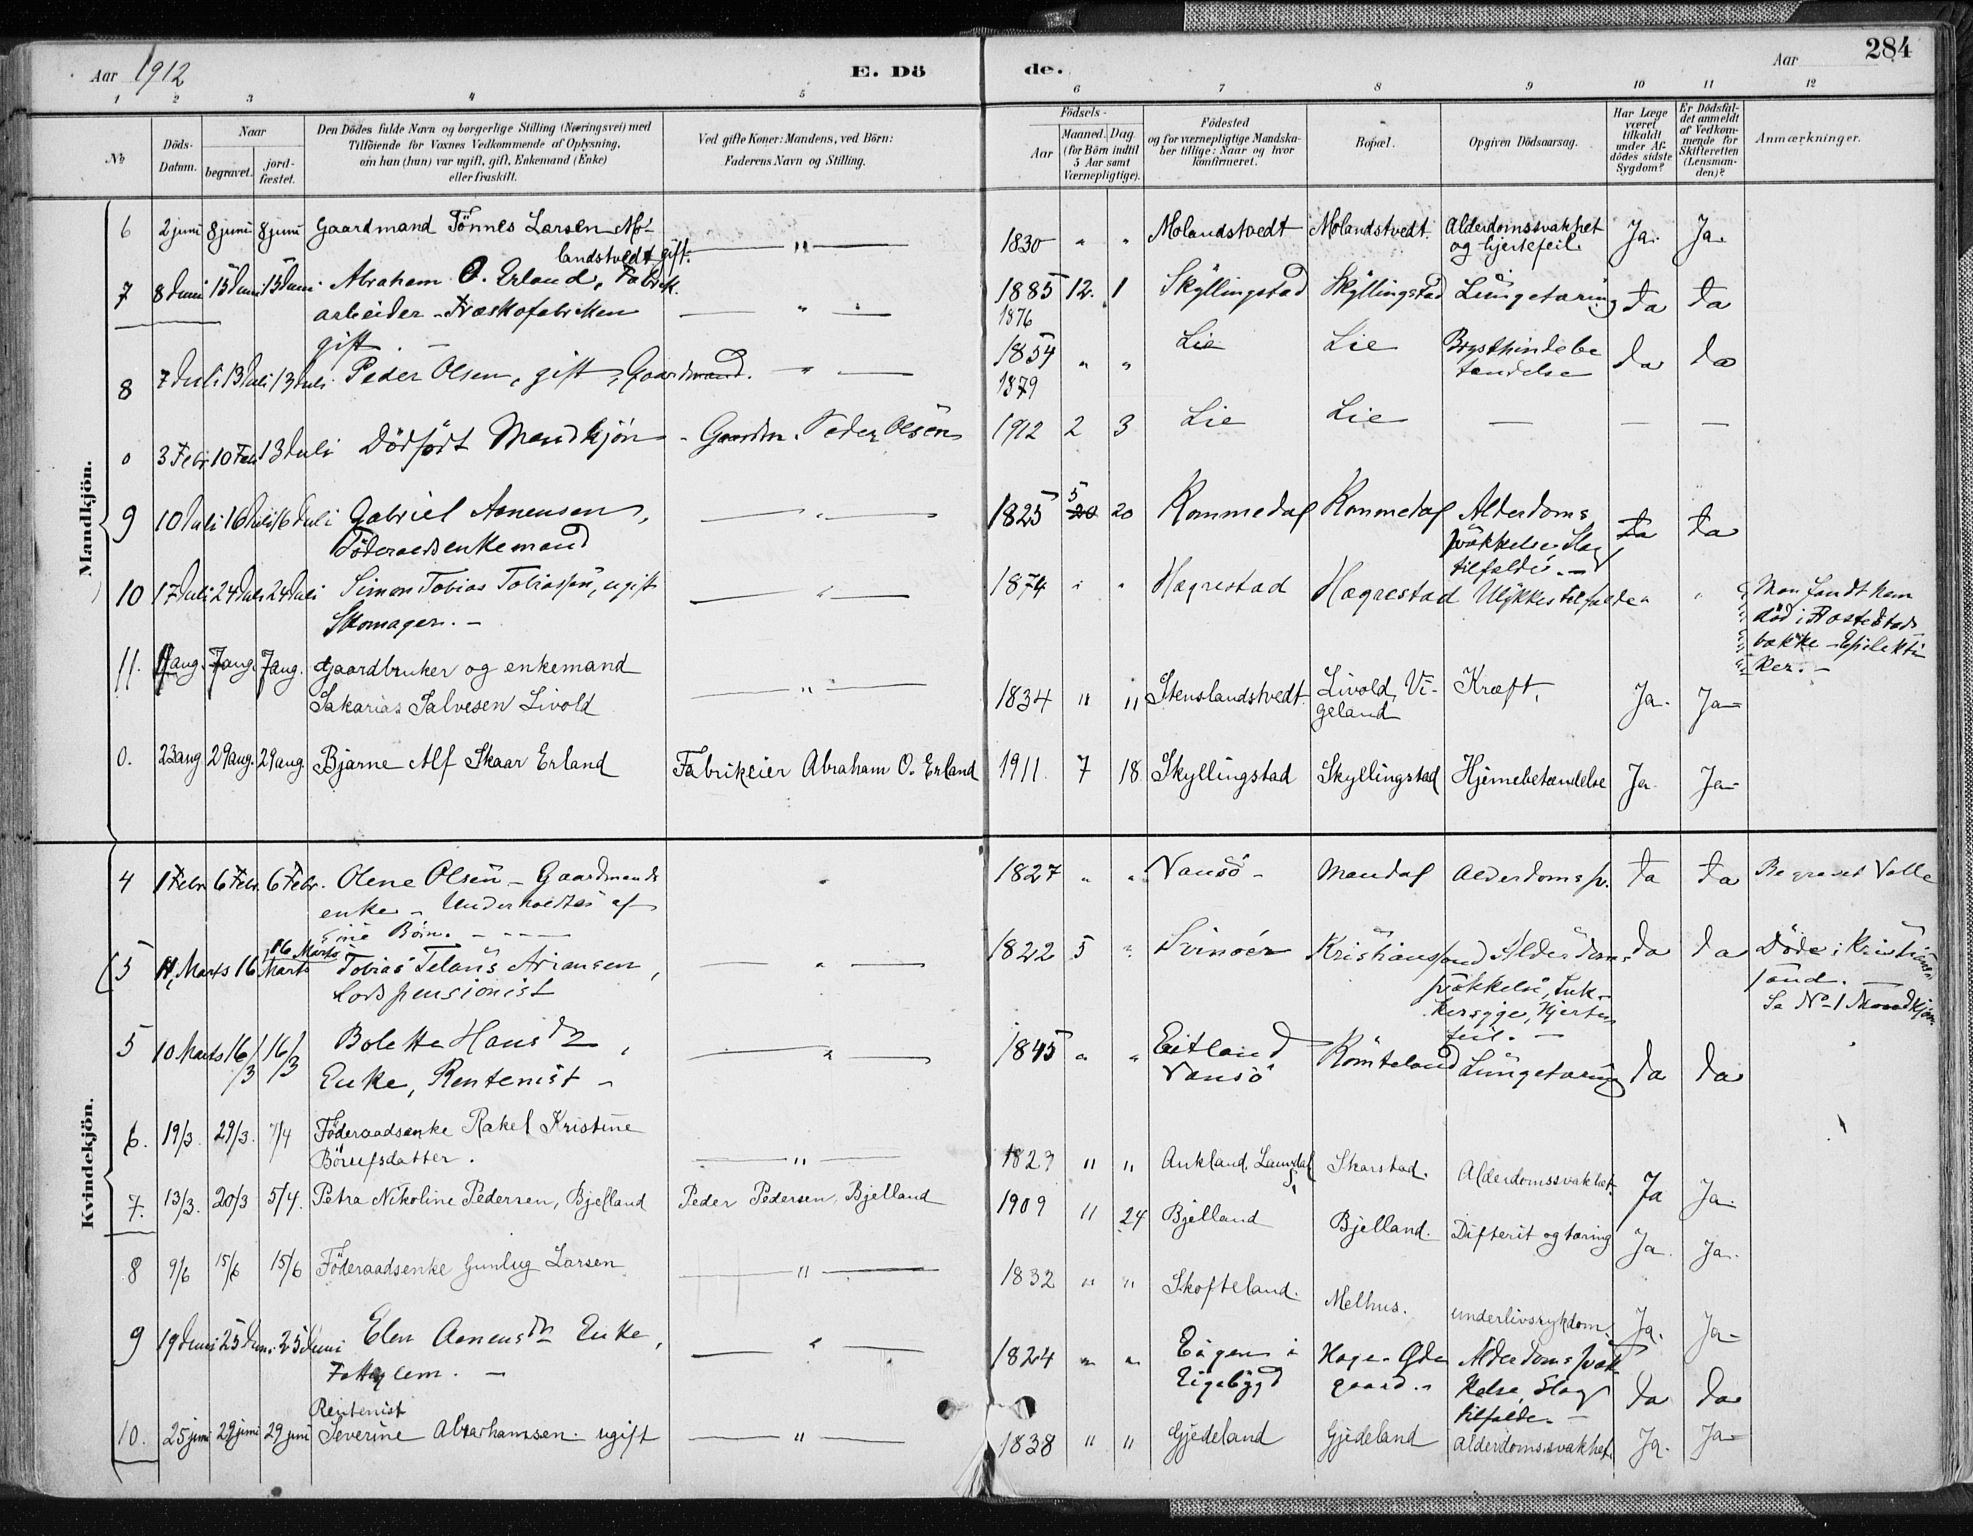 Aar 1912
E. Dö
de.
Aar
284
1 2 3 4 5 6 7 8 9 10 11 12
No
Döds-Datum.
Naar
begravet.
jord-fæstet.
Den Dödes fulde Navn og borgerlige Stilling (Næringsvei) med
Tilföiende for Voxnes Vedkommende af Oplysning,
om han (hun) var ugift, gift, Enkemand (Enke)
eller fraskilt.
Ved gifte Koner: Mandens, ved Börn:
Faderens Navn og Stilling.
Födsels-
Aar
Maaned. Dag.
(for Börn indtil
5 Aar samt
Værnepligtige).
Födested
og for værnepligtige Mandska-
ber tillige: Naar og hvor
konfirmeret.
Bopæl.
Opgiven Dödsaarsag.
Har Læge
været
tilkaldt
under Af-
dödes sidste
Sygdom?
Er Dödsfal-
det anmeldt
af Vedkom-
mende for
Skifteretten
(Lensman-
den)?
Anmærkninger.
Mandkjön.
6 2 juni 8 juni 8 juni Gaardmand Tönnes Larsen Mo-
landstvedt gift. " 1830 " " Molandstvedt Molandstvedt. Alderdomssvakhet
og hjertefeil. Ja. Ja.
7 8 Juni 15 Juni 15 Juni Abraham O. Erland, Fabrik
arbeider - Træskofabriken
gift. " 1885 12. 1 Skyllingstad Skyllingstad Lungetæring Ja Ja
1876
8 7 Juli 13 Juli 13 Juli Peder Olsen, gift, Gaardmand. " 1854 " " Lie Lie Brysthindebe
tændelse Ja Ja
1879
0 3 Febr 10 Feb 13 Juli Dödfödt Mandkjön - Gaardm. Peder Olsen 1912 2 3 Lie Lie — — —
9 10 Juli 16 Juli 16 Juli Gabriel Aanensen,
Föderaadsenkemand " 1825 5 20 20 Rommedal Rommedal Alderdoms
svækkelse, Slag
tilfælde. — Ja Ja
10 17 Juli 24 Juli 24 Juli Simon Tobias Tobiassen, ugift
Skomager. - " 1874 " " Hægrestad Hægrestad Ulykkestilfælde " " Man fandt ham
död i
bakke - Epilekti
ker. -
11. aug. 7 aug. 7 aug. Gaardbruker og enkemand
Sakarias Salvesen Livold " 1834 " " Stenslandstvedt. Livold, Vi-
geland Kræft, Ja. Ja
0. 23 aug 29 aug. 29 aug Bjarne Alf Skaar Erland Fabrikeier Abraham O. Erland 1911. 7 18 Skyllingstad Skyllingstad Hjernebetændelse Ja Ja
Kvindekjön.
4 1 Febr 6 Febr. 6 Febr. Olene Olsen - Gaardmands
enke - Underholdtes af
sine Börn. " 1827 " " Vansö - Mandal Alderdomssv. Ja Ja Begravet Valle
(5 11 Marts 16 Marts 16 Marts Tobias Ariansen,
Lodspensionist " 1822 5 " Svinöer Kristianssand Alderdoms
svækkelse, Suk-
kersyge, Hjerte
feil. - Ja Ja Döde i Kristians
sand. -
Se No 1 Mandkjön
5 10 Marts 16/3 16/3 Bolette Hansdtr,
Enke, Rentenist - " 1845 " " Eitland
Vansö Römteland Lungetæring Ja Ja
6. 19/3. 29/3. 7/4 Föderaadsenke Rakel Kristine
Börufsdatter. " 1829 " " Aukland, Laudal
S. Skarstad. Alderdomssvakhet. Ja Ja.
7. 13/3. 20/3 5/4. Petra Nikoline Pedersen, Bjelland Peder Pedersen, Bjelland 1909 " 24 Bjelland Bjelland. Difterit og tæring Ja. Ja.
8 9/6 15/6 15/6 Föderaadsenke Gunlug Larsen " 1832 " " Skofteland. Melhus. underlivssykdom. Ja. Ja
9 19 Juni 25 Juni 25 Juni Elen Aanensdtr Enke,
Fattiglem. - " 1824 " " Eigen i
Eigebygd Hage. Öde
gaard. Alderdomssvæk
kelse, Slag
tilfælde. — Ja Ja
10. 25 juni 29 juni 29 juni Rentenist
Severine Abrahamsen. ugift " 1838 " " Gjedeland Gjedeland Alderdomssvakhet. Ja. Ja